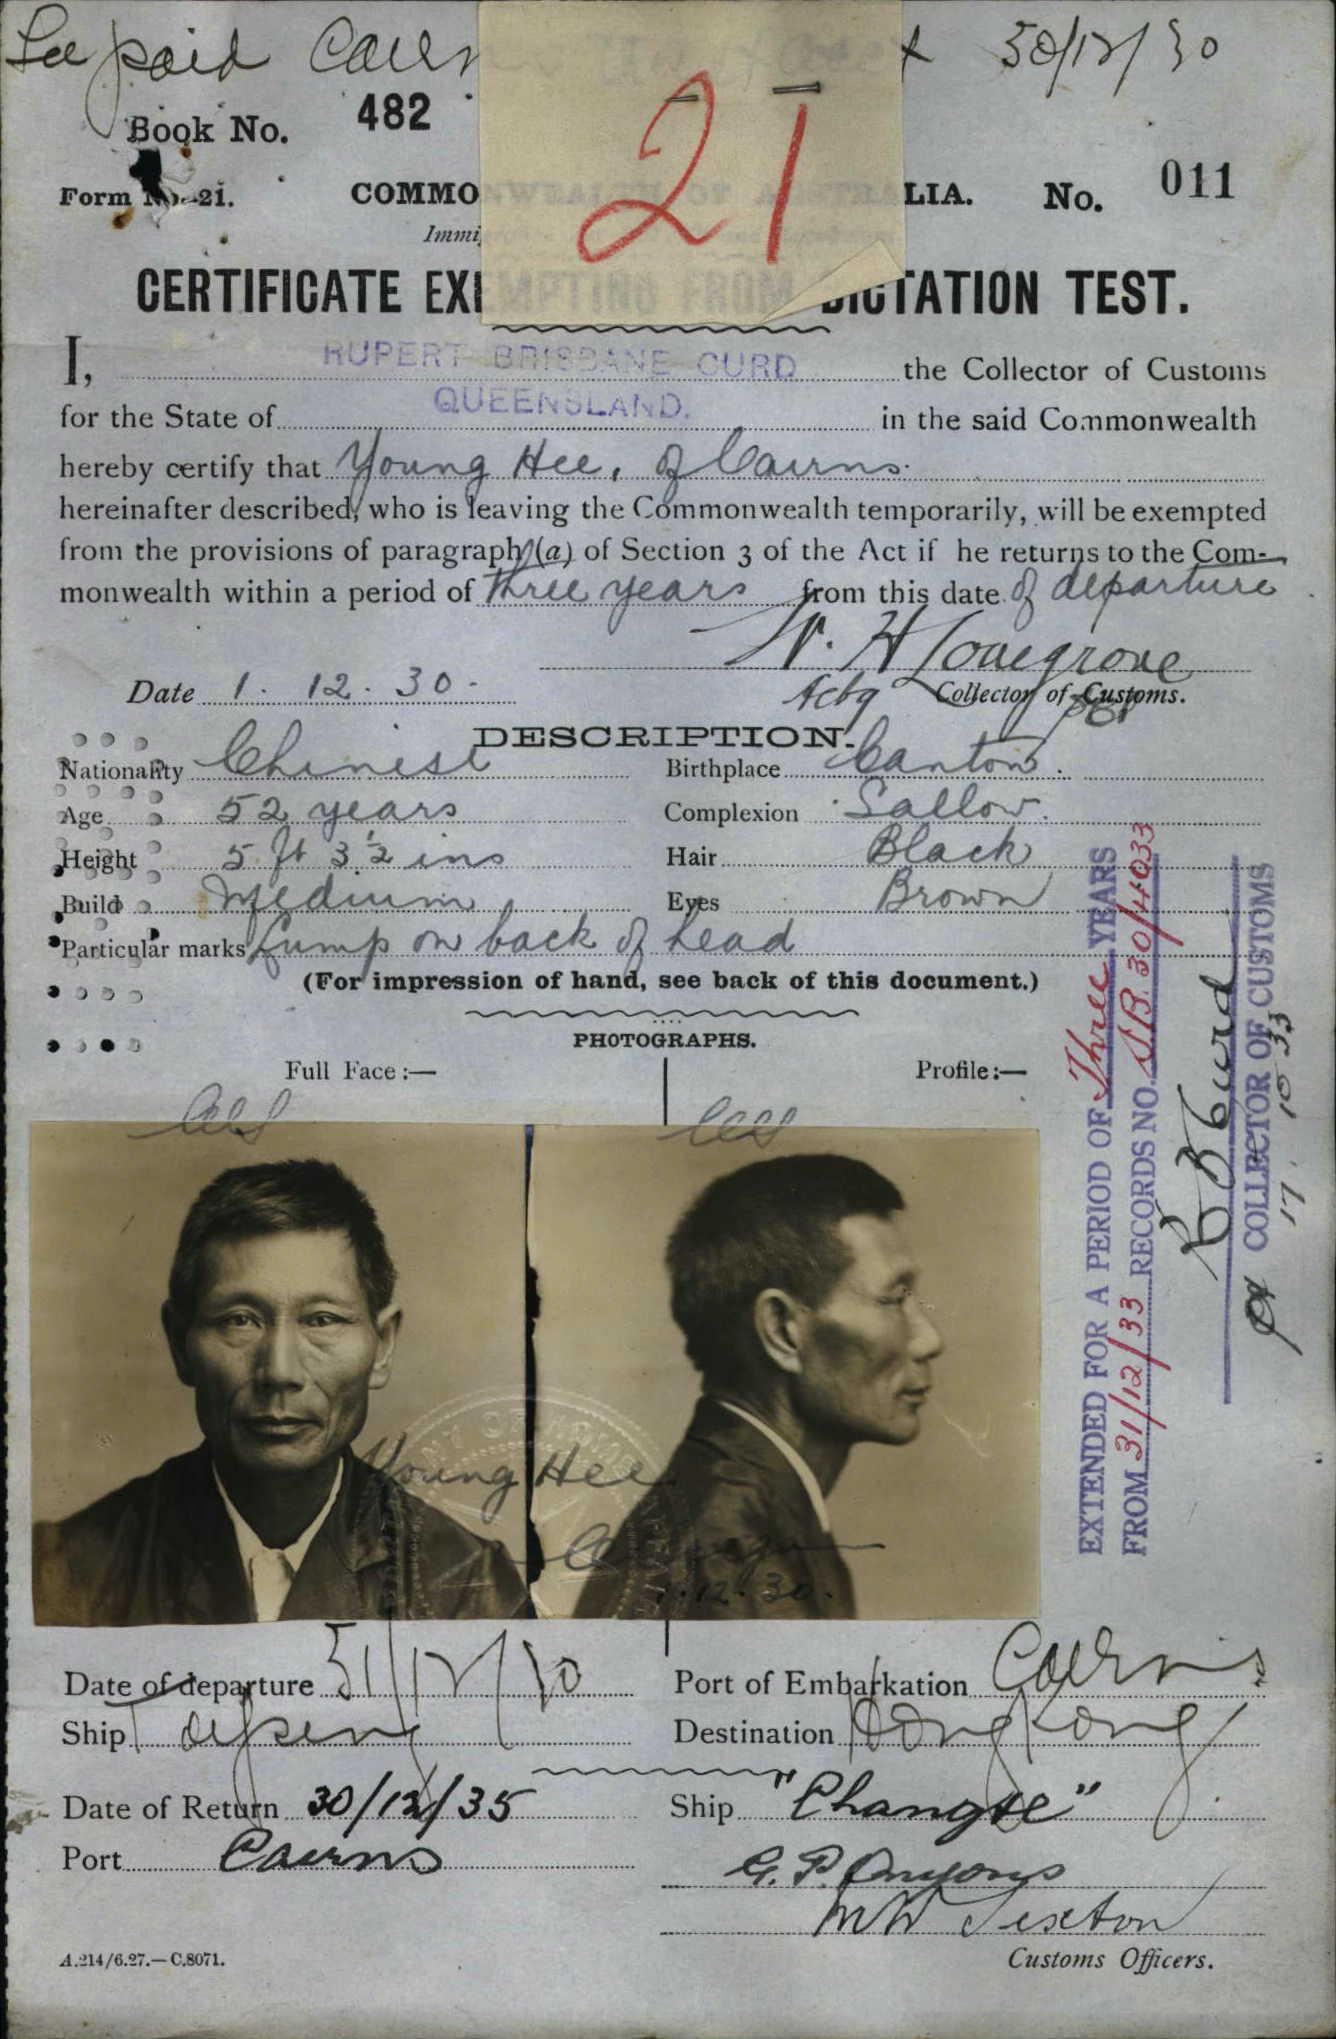 Fee paid Cairns 30/12/30
21
Book No. 482
Form No. 21.
COMMONWEALTH OF AUSTRALIA. No. 011
CERTIFICATE EXEMPTING FROM DICTATION TEST.
I, RUPERT BRISBANE CURD the Collector of Customs
for the State of QUEENSLAND. in the said Commonwealth
hereby certify that Young Hee, of Cairns.
hereinafter described, who is leaving the Commonwealth temporarily, will be exempted
from the provisions of paragraph (a) of Section 3 of the Act if he returns to the Com-
monwealth within a period of three years from this date of departure
W. H Lovegrove
Date 1. 12. 30. Actg Collector of Customs.
DESCRIPTION.
Nationality Chinese Birthplace Canton.
Age 52 years Complexion Sallow.
Height 5 ft 3½ ins Hair Black
Build Medium Eyes Brown
Particular marks Lump on back of head
(For impression of hand, see back of this document.)
PHOTOGRAPHS.
Full Face:— Profile:—
Young Hee
1.12.30.
EXTENDED FOR A PERIOD OF Three YEARS
FROM 31/12/33 RECORDS NO. S.B. 30/4033
R B Curd
COLLECTOR OF CUSTOMS
17. 10 33
Date of departure 31/12/30 Port of Embarkation Cairns
Ship Taiping Destination Hong Kong
Date of Return 30/12/35 Ship "Changte"
Port Cairns
G. P. Onyons
W W Sexton
A.214/6.27.—C.8071. Customs Officers.